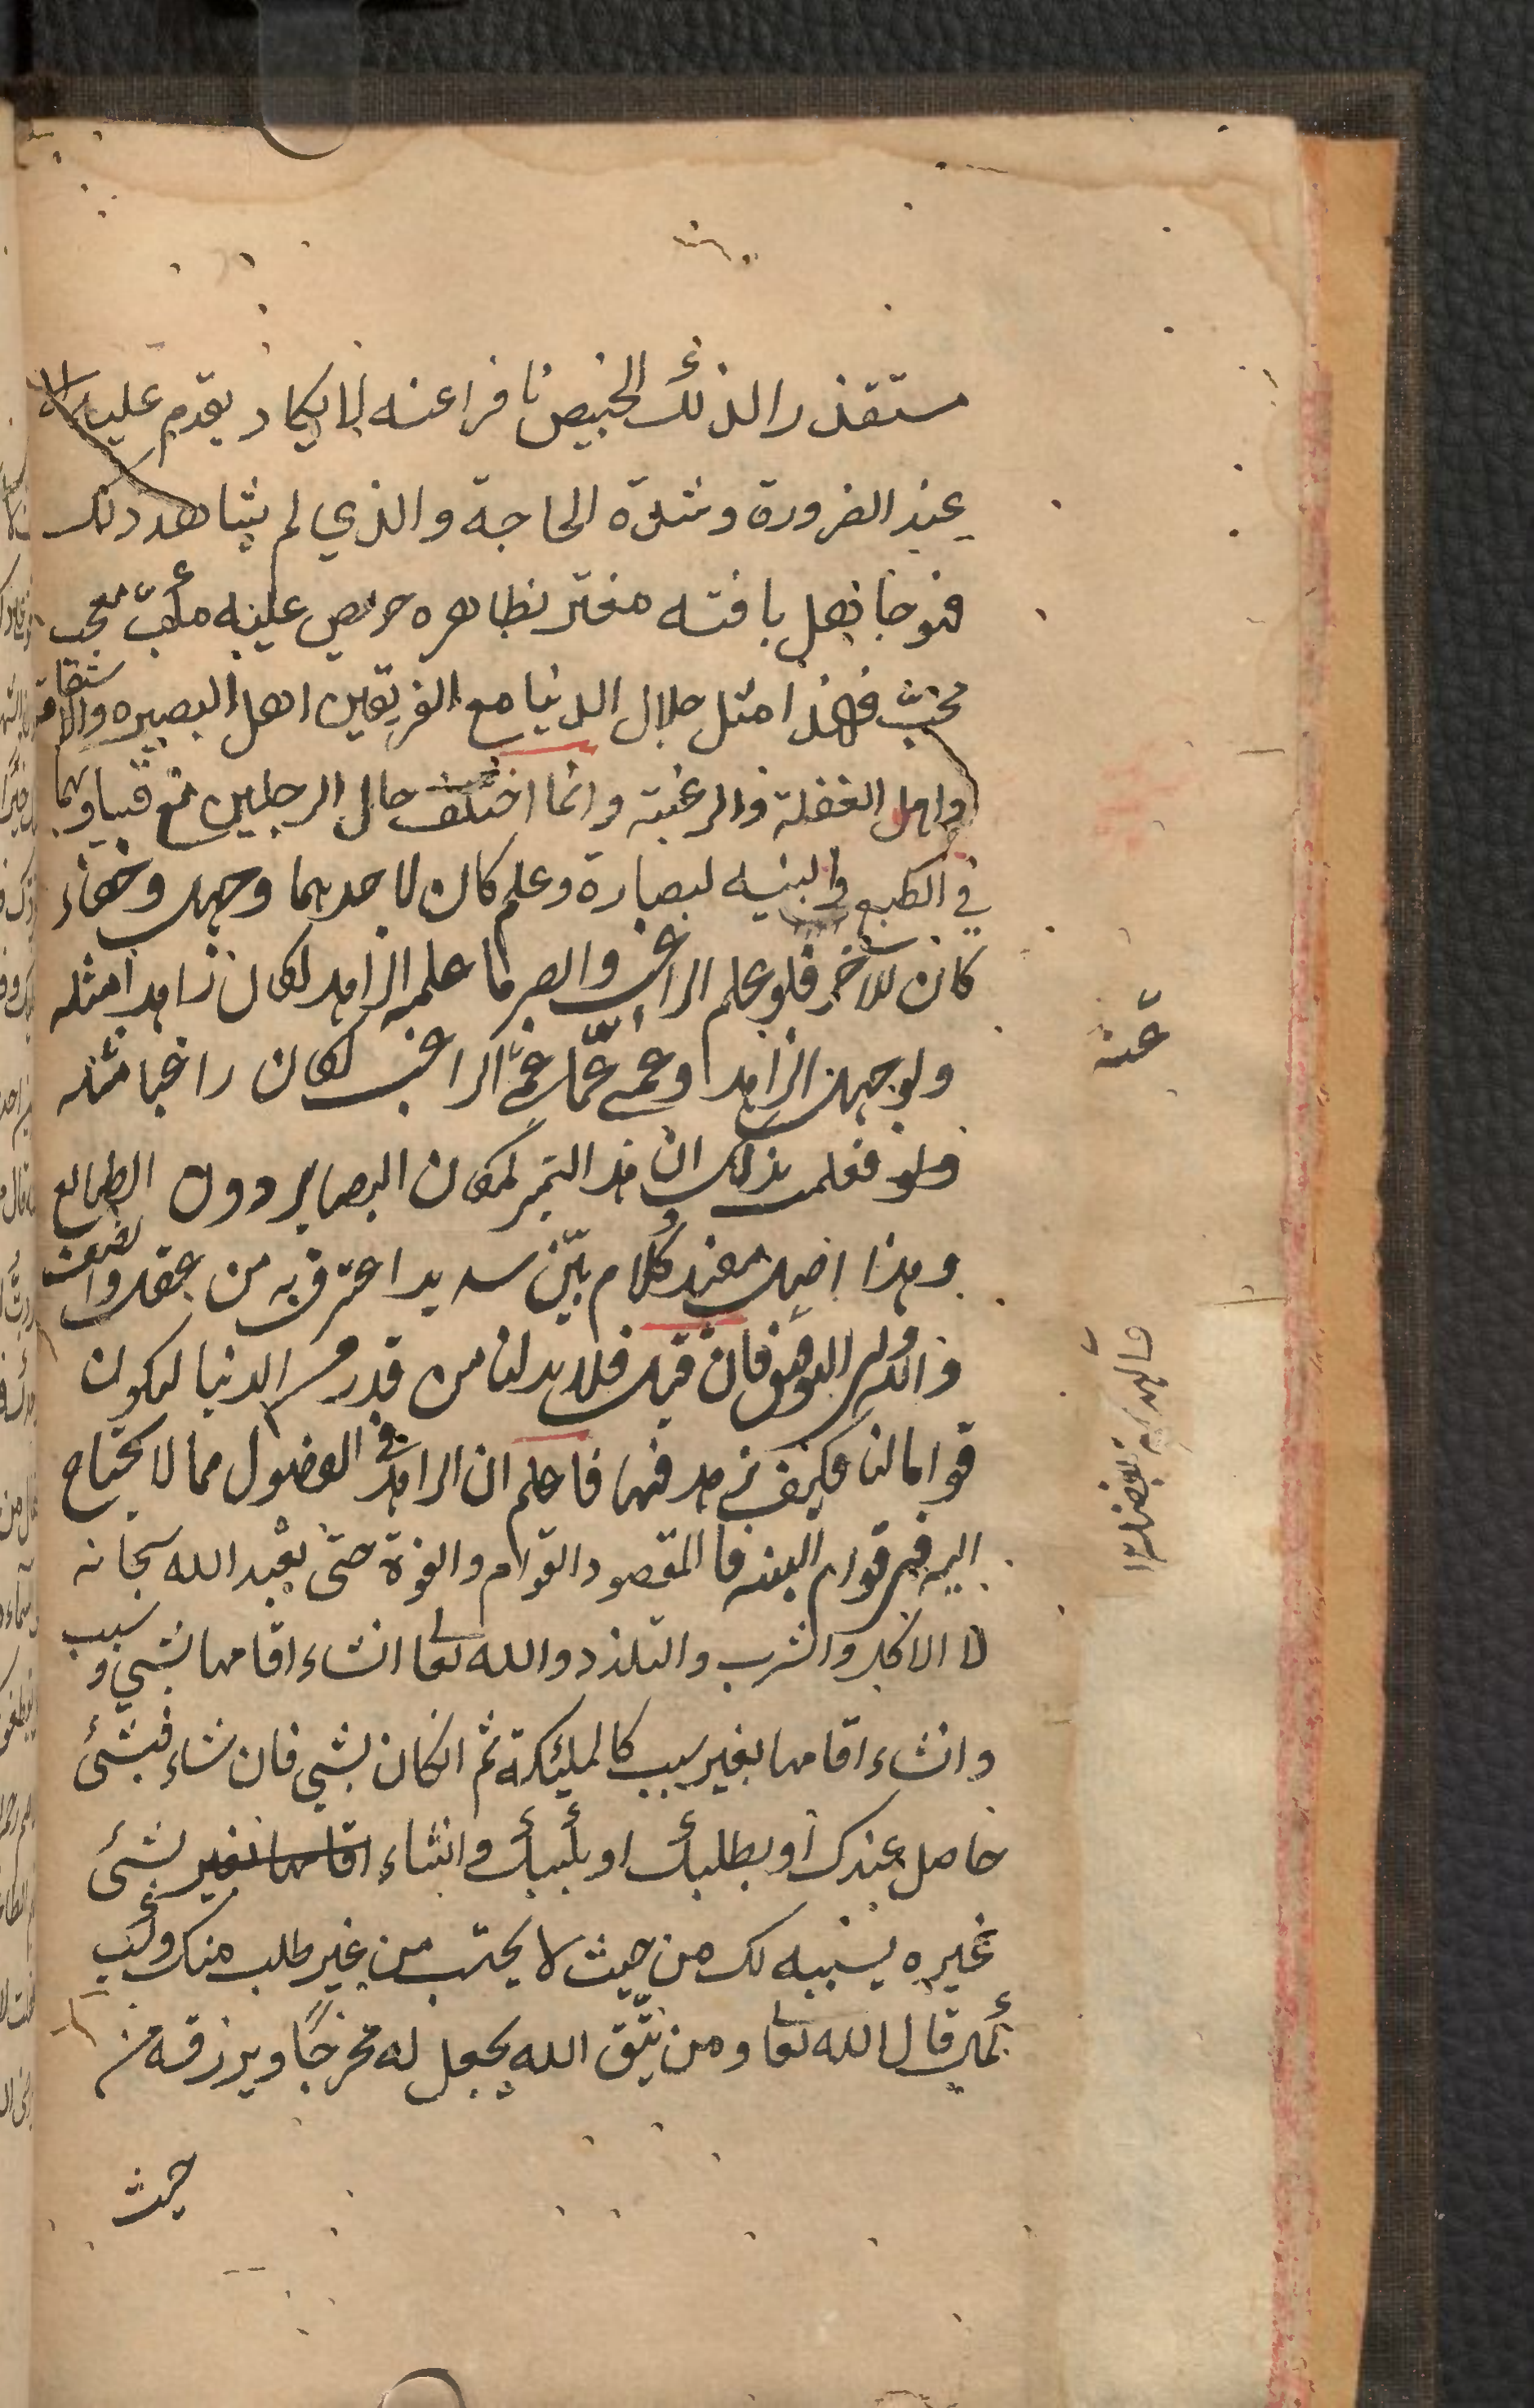 مستقذرا لذلك الخبيص نافرا عنه لا يكاد يقدم عليه الا
عند الضرورة وشدة الحاجة والذي لم يشاهد ذلك
فهو جاهل بافته مغتر بظاهره حريص عليه مكب معجب
محب فهذا مثل حلال الدنيا مع الفريقين اهل البصيره والاستقامة
واهل الغفلة والرغبة وانما اختلف حال الرجلين مع تساويهما
في الطبع والبنيه لبصارة وعلم كان لاحدهما وجهل وخفاء
كان للاخر فلو علم الراغب وابصر ما علمه الزاهد لكان زاهدا مثله
ولو جهل الزاهد وعمي عما عمي الراغب لكان راغبا مثله
فعلمت بذلك ان هذا التميز لمكان البصاير دون الطبايع
وهذا اصل مفيد كلام بين سديد اعترف به من عقل وانصف
والله ولي التوفيق فان قيل فلا بد لنا من قدر من الدنيا ليكون
قواما لنا فكيف نزهد فيها فاعلم ان الزهد في الفضول مما لا يحتاج
اليه في قوام البنيه فالمقصود القوام والقوة حتى تعبد الله سبحانه
لا الاكل والشرب والتلذذ والله تعا انشاء اقامها بشيء وسبب
وانشاء اقامها بغير سبب كالمليكة ثم انكان بشيء فان شاء فبشئ
حاصل عندك او بطلبك او بسببك وانشاء اقامها بغير بشئ
غيره يسببه لك من حيث لا يحتسب من غير طلب منك وكسب
كما قال الله تعا ومن يتق الله يجعل له مخرجا ويرزقه من
حيث
عنه